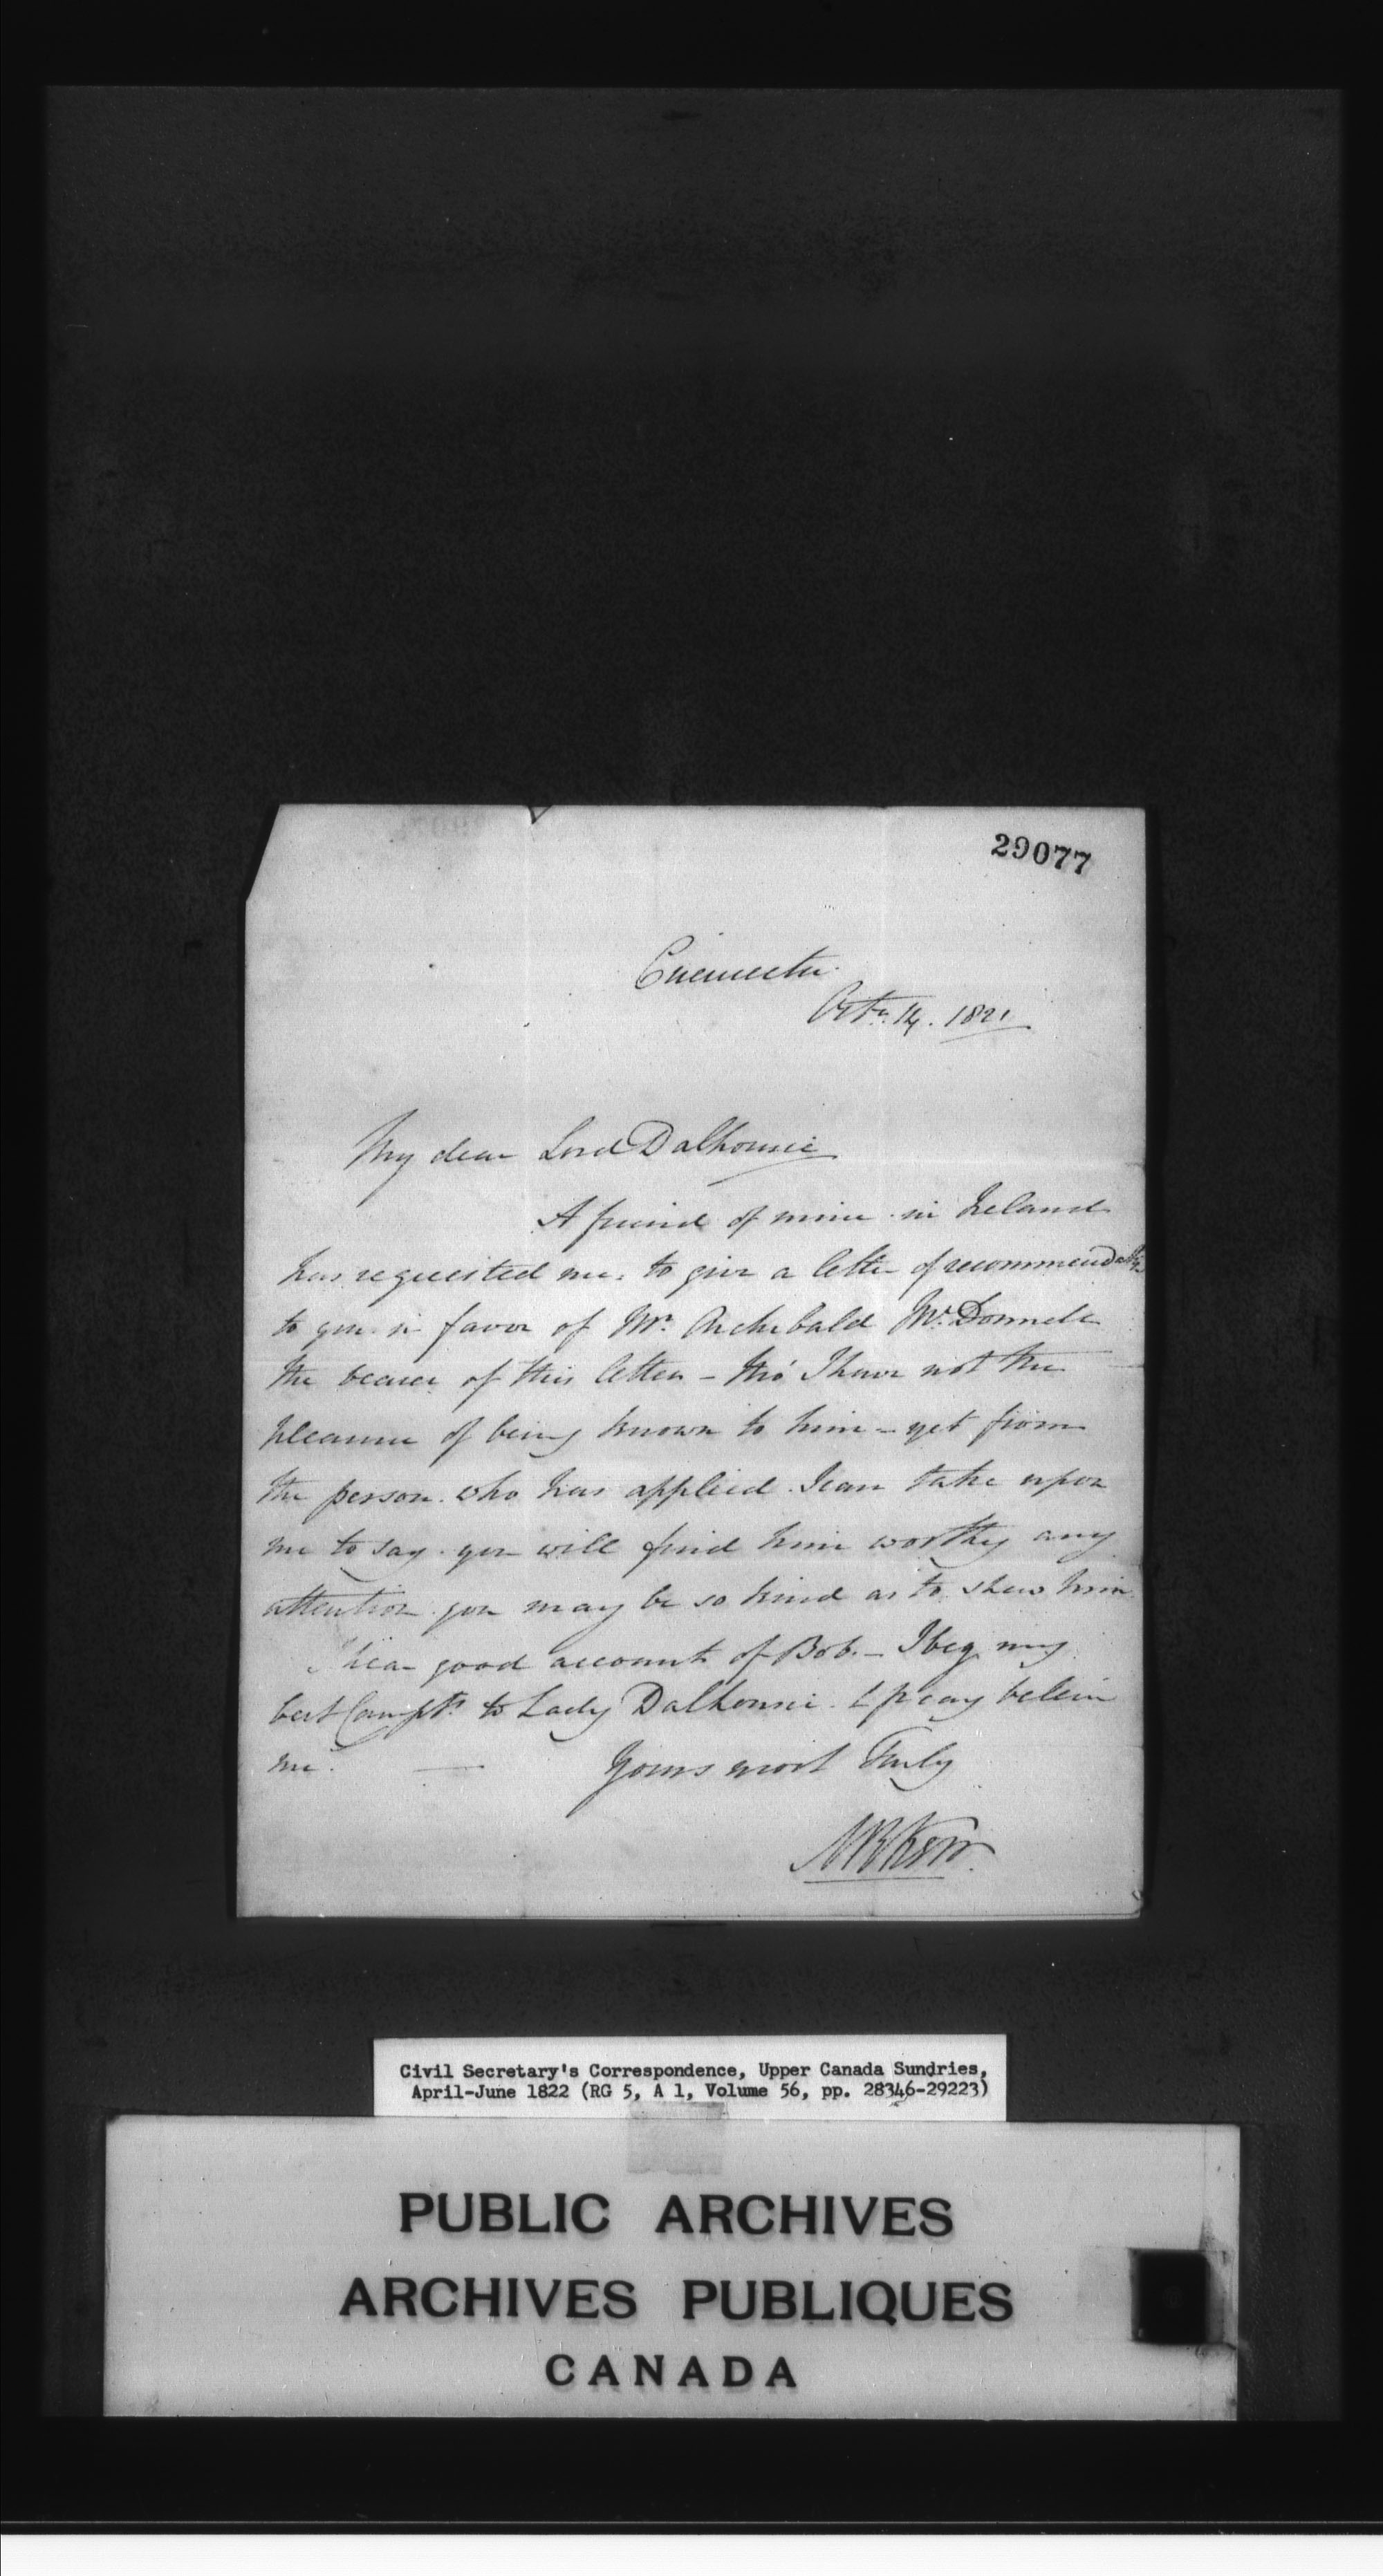 29077
Octr. 14. 1821
My dear Lord Dalhousie
A friend of mine in Ireland
has requested me to give a letter of recommendation
to you in favor of Mr. Archibald McDonnell
the bearer of this letter - tho' I have not the
pleasure of being known to him - yet from
the person who has applied I can take upon
me to say you will find him worthy any
attention you may be so kind as to shew him
I hear good accounts of Bob. - I beg my
best Compts. to Lady Dalhousie. & pray believe
me. — Yours most Truly
Kerr.
Civil Secretary's Correspondence, Upper Canada Sundries,
April-June 1822 (RG 5, A 1, Volume 56, pp. 28346-29223)
PUBLIC ARCHIVES
ARCHIVES PUBLIQUES
CANADA